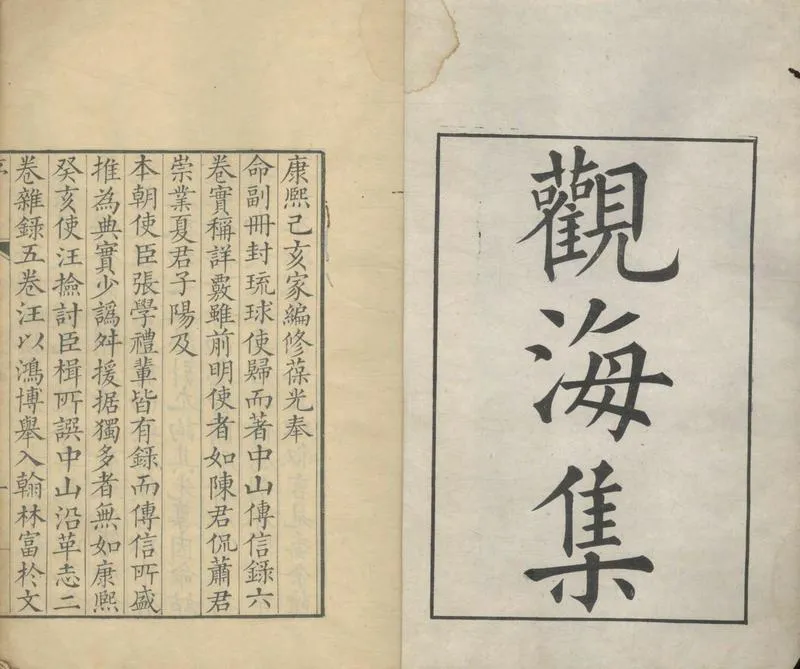 觀海集
康熙己亥家編修葆光奉
命副冊封琉球使歸而著中山傳信錄六
卷實稱詳覈雖前明使者如陳君侃蕭君
崇業夏君子陽及
本朝使臣張學禮輩皆有錄而傳信所盛
推為典實少譌舛援据獨多者無如康熙
癸亥使汪撿討臣楫所譔中山沿革志二
卷雜錄五卷汪以鴻博舉入翰林富於文